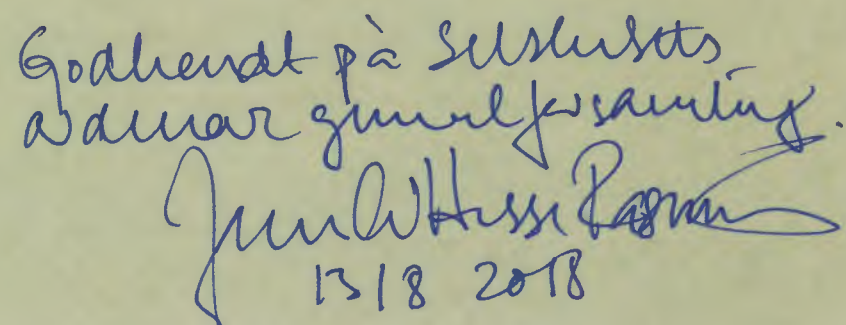 Godkendt på Selskabets
ordinær generalforsamling.
Hesse Rasmussen
13/8 2018